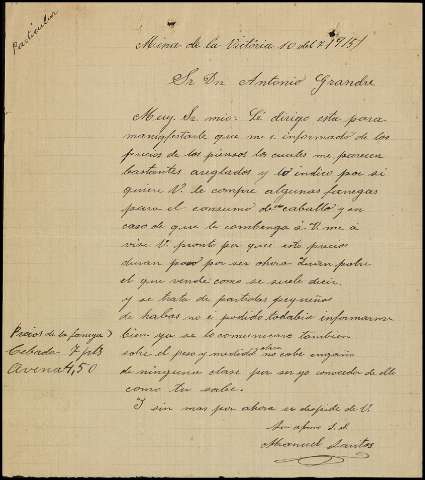 Particular
Mina de la Victoria 10 del 7 1915/
Sr Dn Antonio Grandre
Muy Sr mio: Le dirigo esta para
manifestarle que me e informado de los
precios de los piensos los cuales me parecen
bastantes areglados y lo indico por si
quiere V. le compre algunas fanegas
para el consumo de caballo y en
caso de que le combenga á V. me á
vise V. pronto por que este precio
duran poco por ser ahora
el que vende como se suele decir.
y se trata de partidas pequeñas
de habas no é podido todabia informarme
bien ya se lo comunicare tambien
sobre el peso y medida no cabe engaño
de ninguna clase por ser yo conocedor de ello
como tu sabe.
Y sin mas por ahora se despide de V.
su afmo S. S.
Manuel Santos
Precios de la fanega
Cebada 7 pts
Avena 4,50